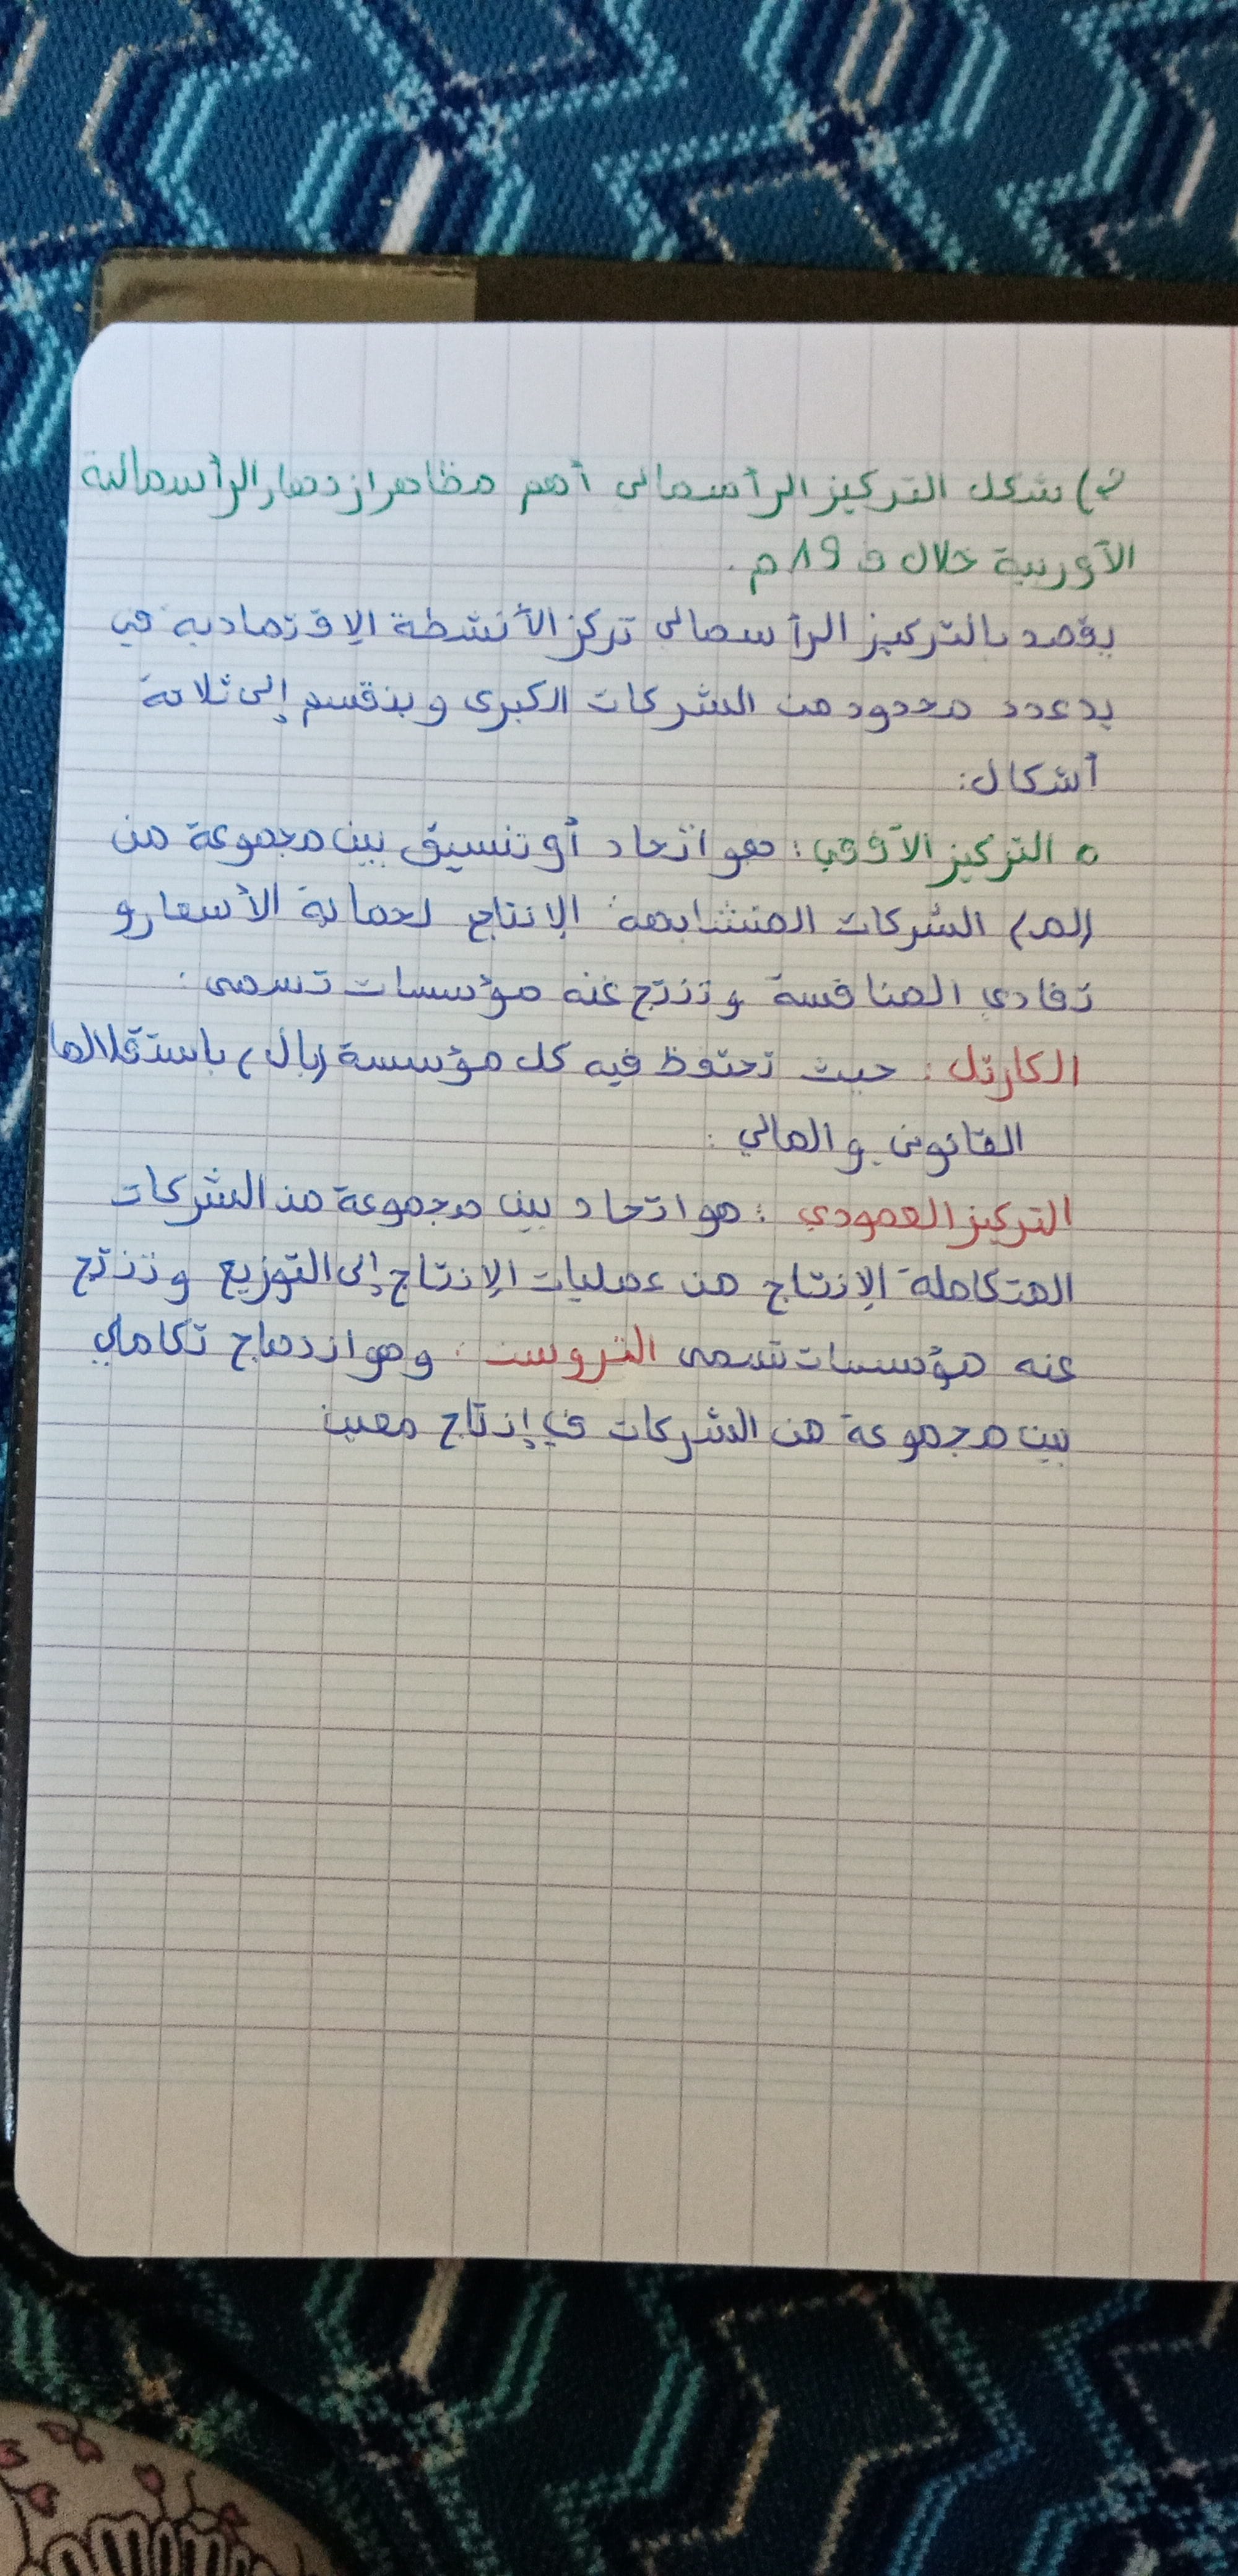 2) شكل التركيز الرأسمالي أهم مظاهر ازدهار الرأسمالية
الأوربية خلال ق 19م.
يقصد بالتركيز الرأسمالي تركز الأنشطة الإقتصادية في
يد عدد محدود من الشركات الكبرى وينقسم إلى ثلاثة
أشكال:
○ التركيز الأفقي: هو اتحاد أو تنسيق بين مجموعة من
(الم) الشركات المتشابهة الإنتاج لحماية الأسعار و
تفادي المنافسة وتنتج عنه مؤسسات تسمى:
الكارتل: حيث تحتفظ فيه كل مؤسسة (بال) باستقلالها
القانوني والمالي.
التركيز العمودي: هو اتحاد بين مجموعة من الشركات
المتكاملة الإنتاج من عمليات الإنتاج إلى التوزيع وتنتج
عنه مؤسسات تسمى التروست: وهو اندماج تكاملي
بين مجموعة من الشركات في إنتاج معين